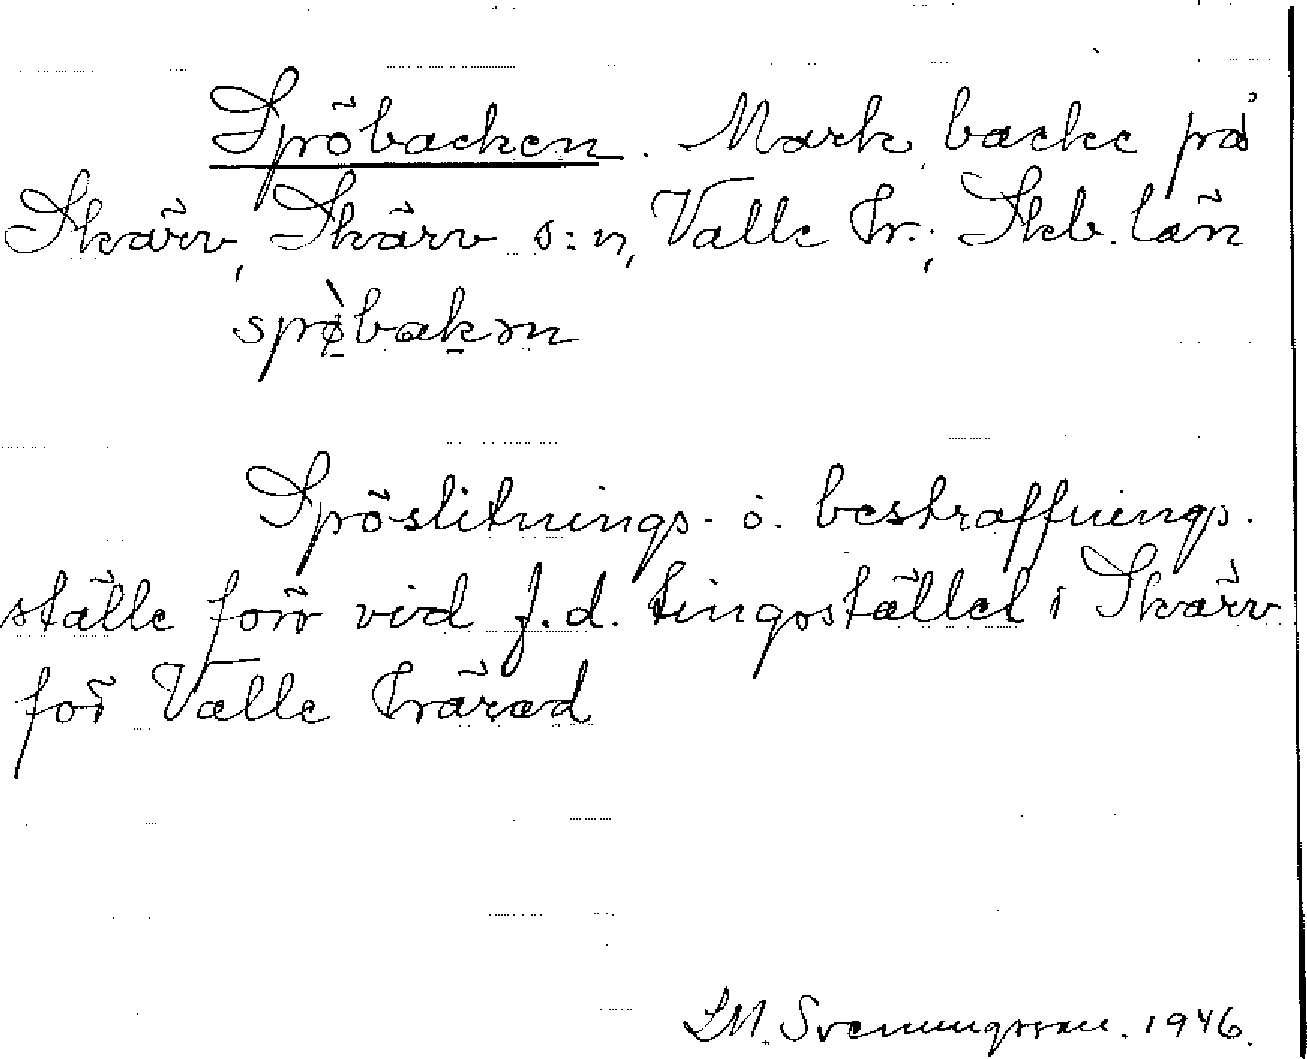 Spöbacken. Mark, backe på
Skärv, Skärv s:n, Valle hr., Skb. län
spø̀bakən
Spöslitnings- o. bestraffnings-
ställe förr vid f.d. tingsstället i Skärv
för Valle härad
LM. Svenungsson. 1946.